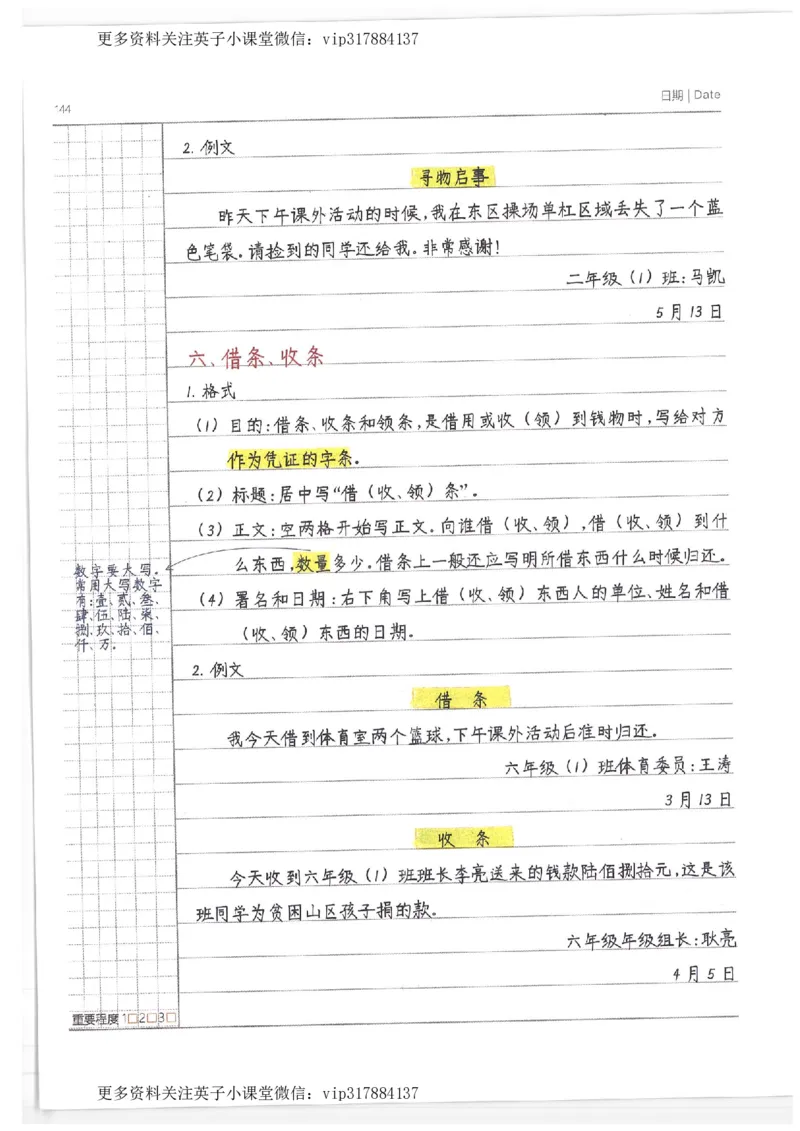 更多资料关注英子小课堂微信：vip317884137
144
日期 | Date
2. 例文
寻物启事
昨天下午课外活动的时候,我在东区操场单杠区域丢失了一个蓝
色笔袋。请捡到的同学还给我。非常感谢!
二年级（1）班:马凯
5月13日
六、借条、收条
1. 格式
（1）目的:借条、收条和领条,是借用或收（领）到钱物时,写给对方
作为凭证的字条。
（2）标题:居中写“借（收、领）条”。
（3）正文:空两格开始写正文。向谁借（收、领）,借（收、领）到什
么东西,数量多少。借条上一般还应写明所借东西什么时候归还。
（4）署名和日期:右下角写上借（收、领）东西人的单位、姓名和借
（收、领）东西的日期。
数字要大写。
常用大写数字
有:壹、贰、叁、
肆、伍、陆、柒、
捌、玖、拾、佰、
仟、万。
2. 例文
借 条
我今天借到体育室两个篮球,下午课外活动后准时归还。
六年级（1）班体育委员:王涛
3月13日
收 条
今天收到六年级（1）班班长李亮送来的钱款陆佰捌拾元,这是该
班同学为贫困山区孩子捐的款。
六年级年级组长:耿亮
4月5日
重要程度 1□2□3□
更多资料关注英子小课堂微信：vip317884137